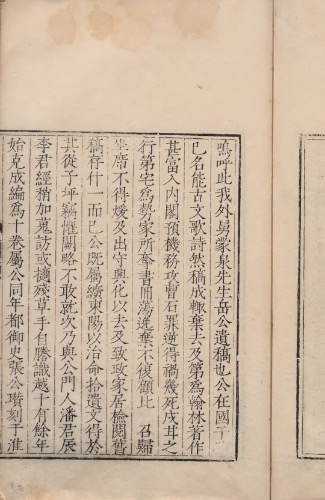 嗚呼此我外舅蒙泉先生岳公遺稿也公在國子
已名能古文歌詩然稿成輙棄去及第為翰林著作
甚富入內閣預機務攻曹石罪逆得禍幾死戍甘之
行第宅為勢家所奪書冊蕩逸棄不復顧比 召歸
坐席不得煖及出守興化以去及致政家居檢閱舊
稿存什一而已公既屬纊東陽以治命拾遺文得於
其從子坪竊懼闕略不敢就次乃與公門人潘君辰
李君經稍加蒐訪或摘殘草手自謄識越十有餘年
始克成編為十卷屬公同年都御史張公瓚刻于淮